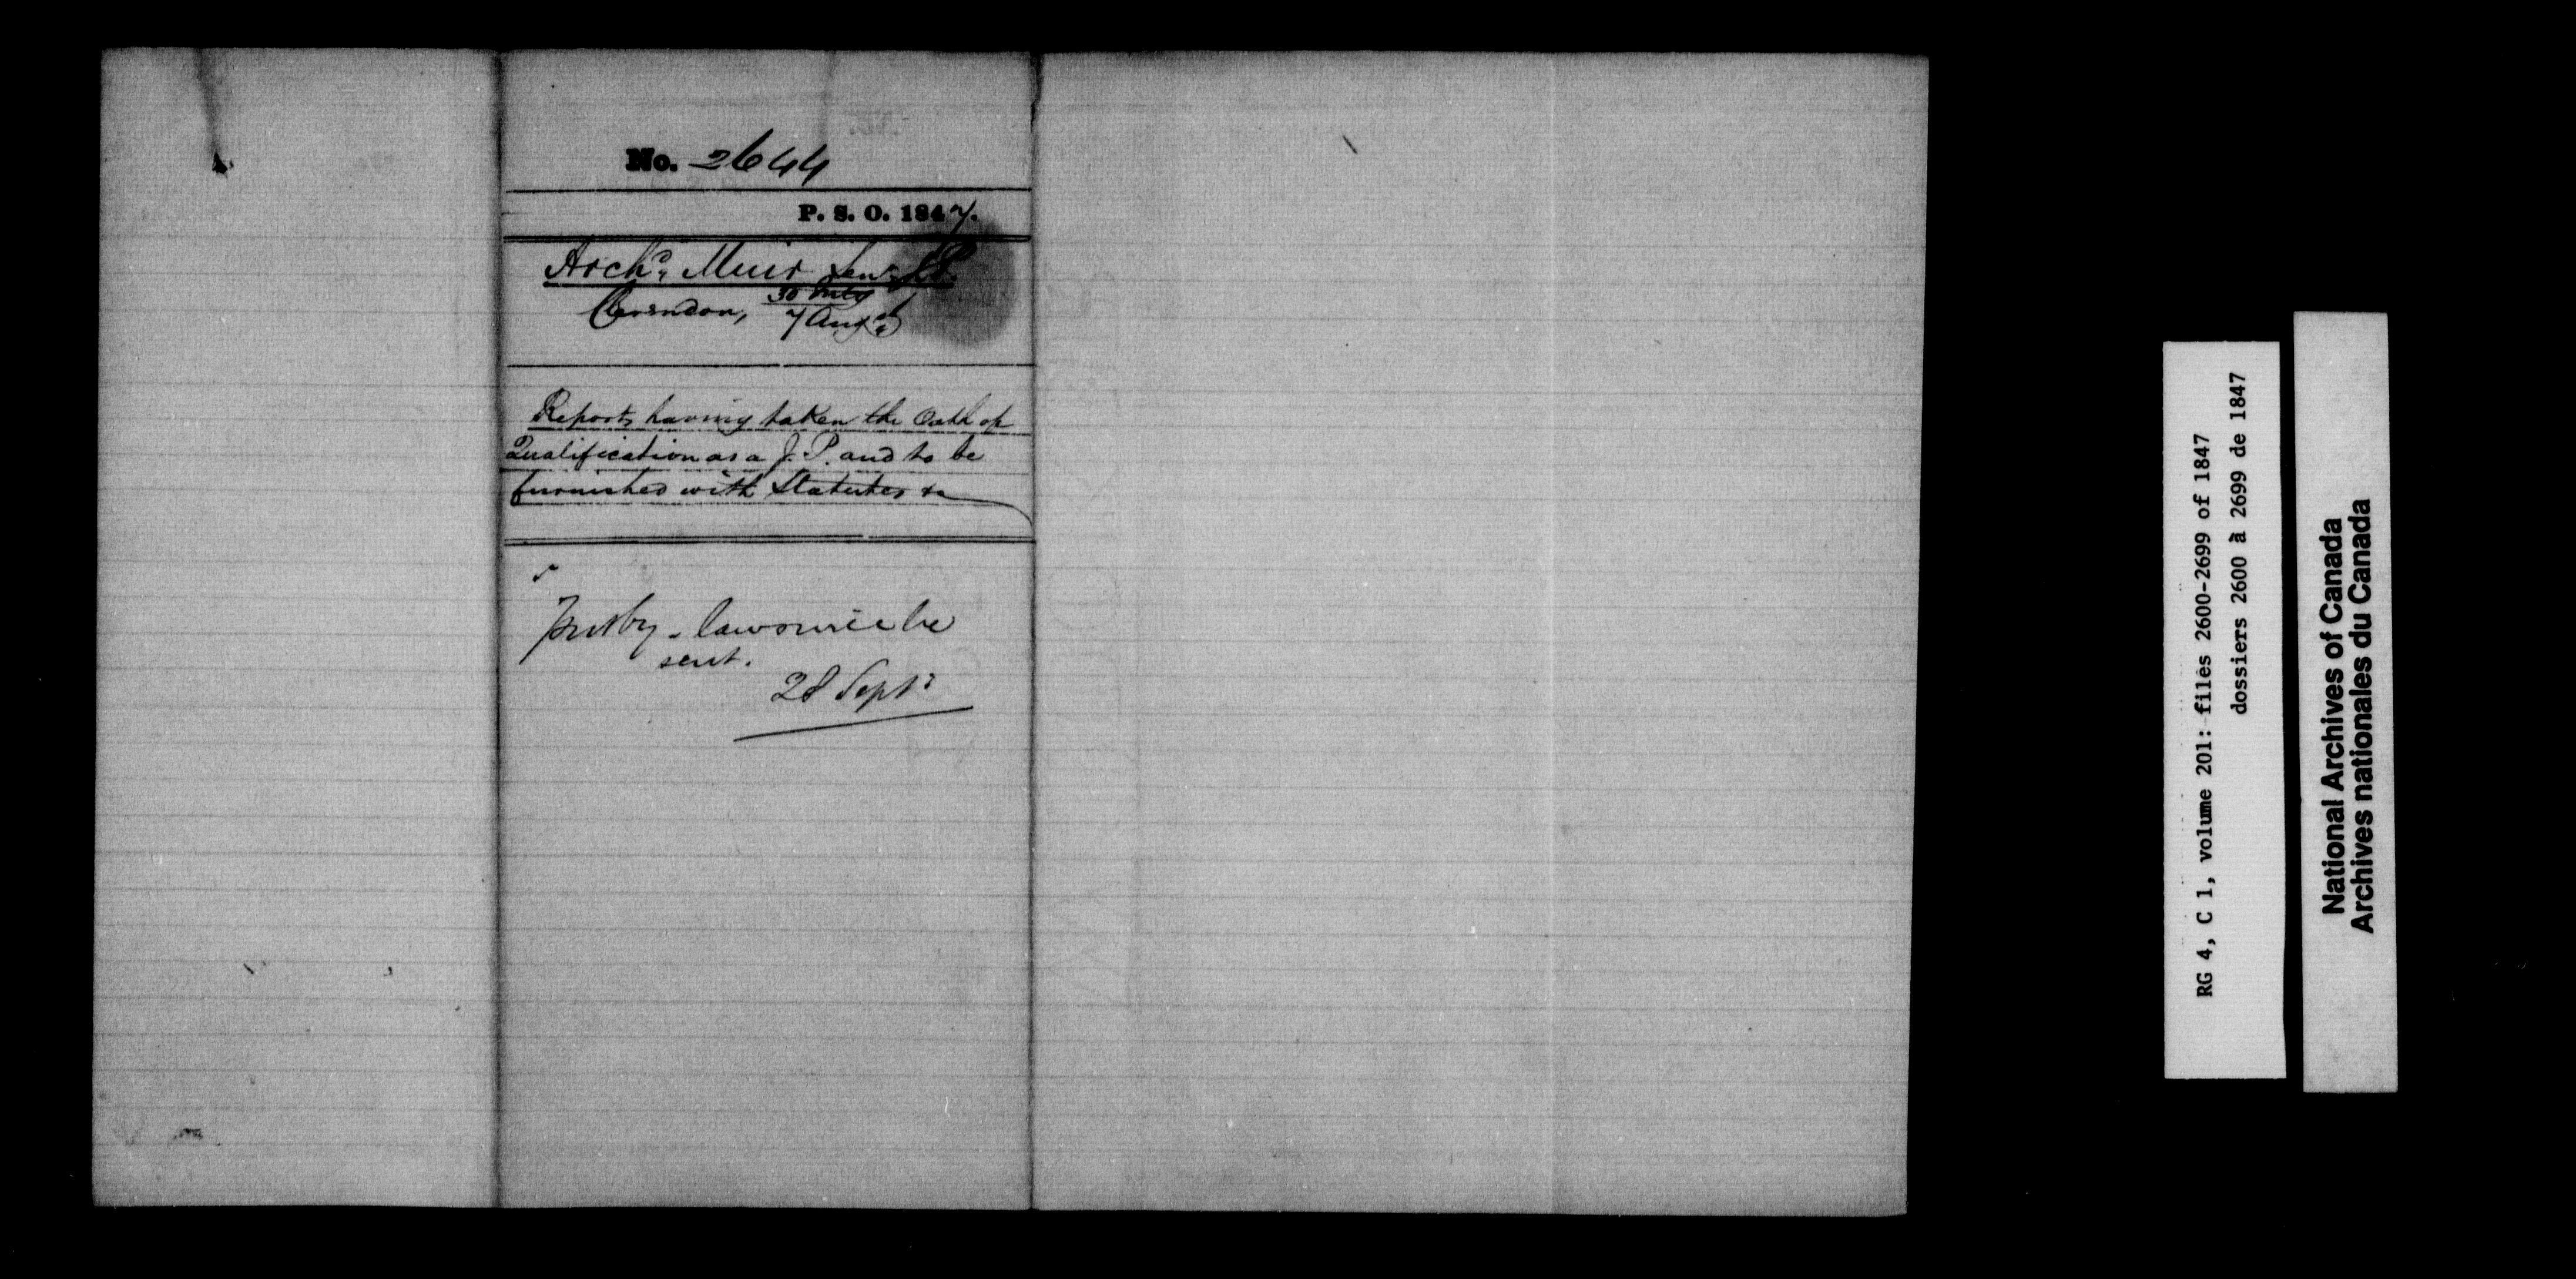 No. 2644
P. S. O. 1847.
Archd. Muir Senr J.P.
Clarendon, 30 July
7 Augst
Reports having taken the Oath of
Qualification as a J. P. and to be
furnished with Statutes &c
will be
sent.
28 Septr
RG 4, C 1, volume 201: files 2600-2699 of 1847
dossiers 2600 à 2699 de 1847
National Archives of Canada
Archives nationales du Canada